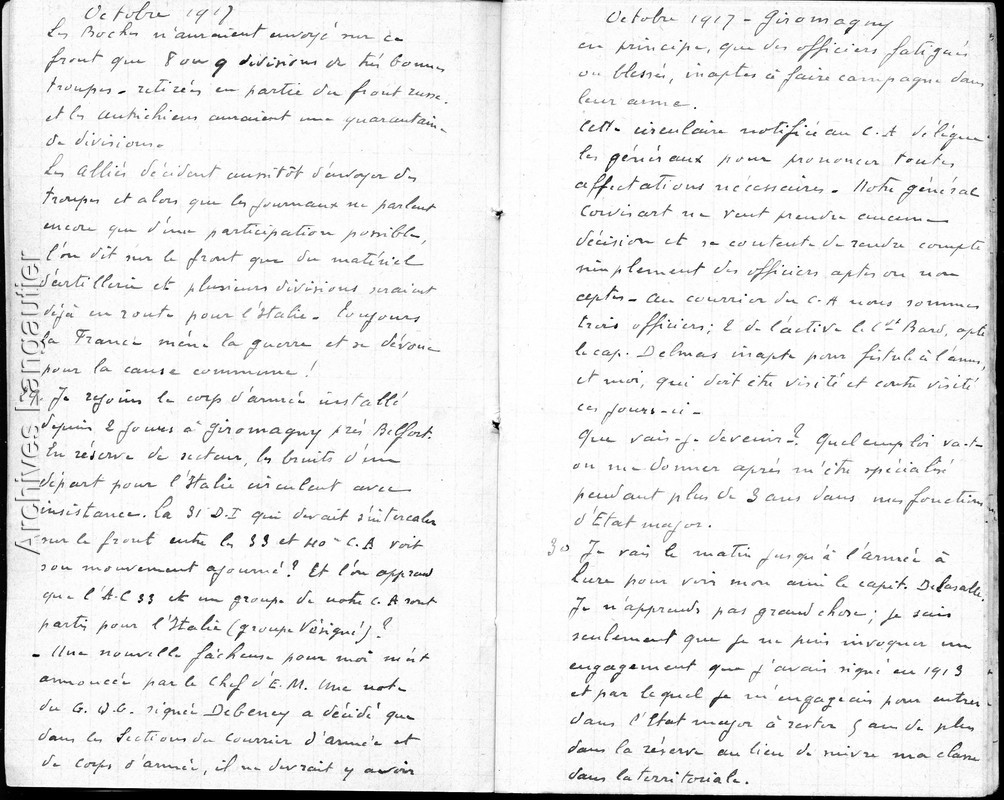 Octobre 1917
Les Boches n'auraient envoyé sur ce
front que 8 ou 9 divisions de très bonnes
troupes - retirées en partie du front russe.
et les autrichiens auraient une quarantaine
de divisions.
Les Alliés décident aussitôt d'envoyer des
troupes et alors que les journaux ne parlent
encore que d'une participation possible,
l'on dit sur le front que du matériel
d'artillerie et plusieurs divisions seraient
déjà en route pour l'Italie - Toujours
la France mène la guerre et se dévoue
pour la cause commune !
Je rejoins le corps d'armée installé
depuis 2 jours à Giromagny près Belfort.
En réserve de secteur, les bruits d'un
départ pour l'Italie circulent avec
insistance. La 31 D.I qui devait s'intercaler
sur le front entre les 33 et 40e C.A voit
son mouvement ajourné ? Et l'on apprend
que l'A.C 33 et un groupe de notre C.A sont
partis pour l'Italie (groupe Vésigné) ?
- Une nouvelle fâcheuse pour moi m'est
annoncée par le Chef d'E.M. Une note
du G.Q.G. signée Debeney a décidé que
dans les Sections du Courrier d'armée et
de corps d'armée, il ne devrait y avoir
Octobre 1917 - Giromagny
en principe, que des officiers fatigués
ou blessés, inaptes à faire campagne dans
leur arme.
Cette circulaire notifiée au C.A délègue
les généraux pour prononcer toutes
affectations nécessaires - Notre général
Corvisart ne veut prendre aucune
décision et se contente de rendre compte
simplement des officiers aptes ou non
aptes - au courrier du C.A nous sommes
trois officiers ; 2 de l'active le Ct Bard, apte
le cap. Delmas inapte pour fistule à l'anus,
et moi, qui doit être visité et contre visité
ces jours-ci -
Que vais-je devenir ? Quel emploi va-t-
on me donner après m'être spécialisé
pendant plus de 3 ans dans mes fonctions
d'Etat major.
30 Je vais le matin jusqu'à l'armée à
Lure pour voir mon ami le capit. Delasalle.
Je n'apprends pas grand chose ; je sais
seulement que je ne puis invoquer un
engagement que j'avais signé en 1913
et par lequel je m'engageais pour entrer
dans l'Etat major à rester 5 ans de plus
dans la réserve au lieu de suivre ma classe
dans la territoriale.
Archives Langautier